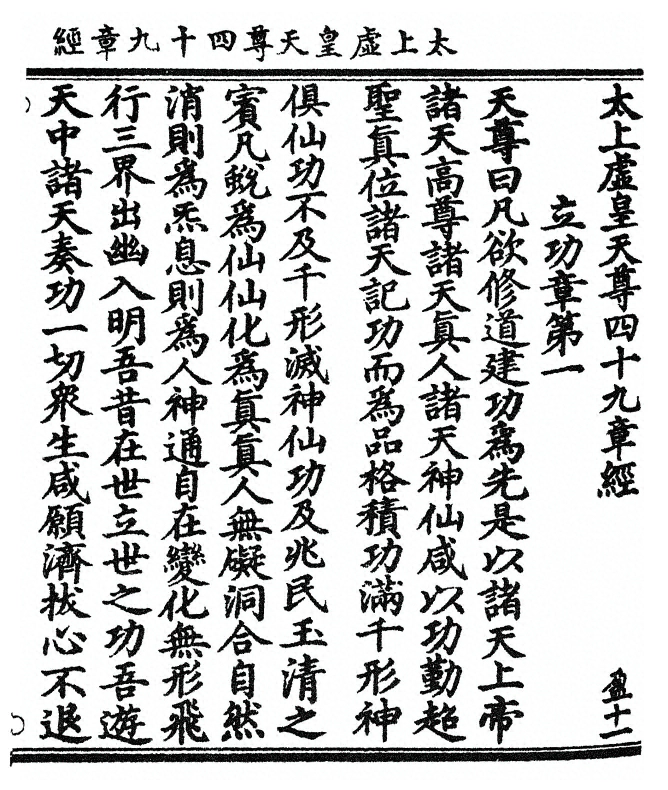 太上虛皇天尊四十九章經
太上虛皇天尊四十九章經
盈十一
立功章第一
天尊曰凡欲修道建功爲先是以諸天上帝
諸天高尊諸天眞人諸天神仙咸以功勤超
聖眞位諸天記功而爲品格積功滿千形神
俱仙功不及千形滅神仙功及兆民玉清之
賓凡蛻爲仙仙化爲眞眞人無礙洞合自然
消則爲炁息則爲人神通自在變化無形飛
行三界出幽入明吾昔在世立世之功吾遊
天中諸天奏功一切衆生咸願濟拔心不退